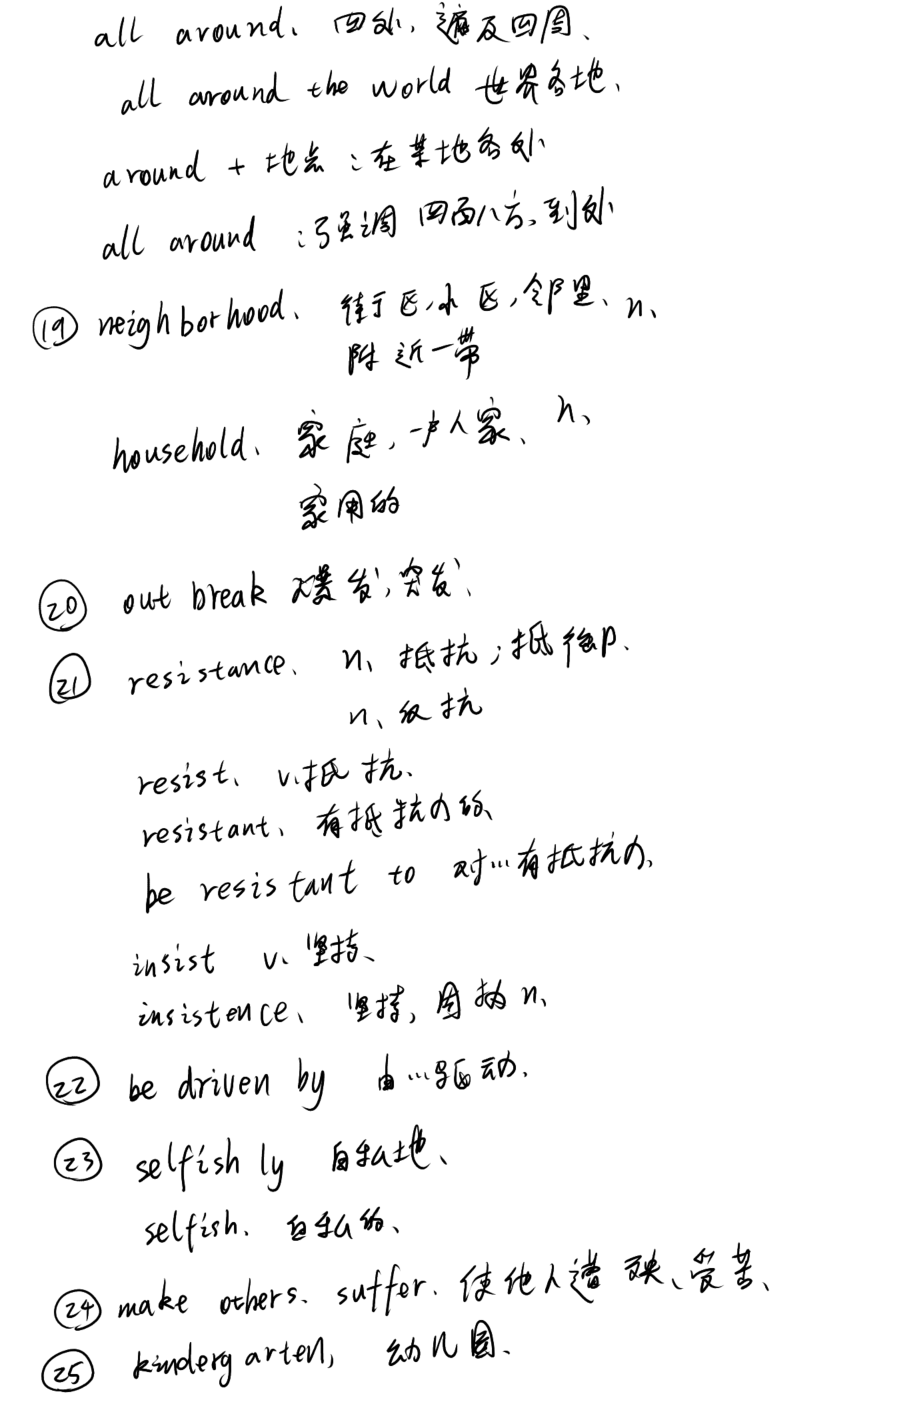 all around、四处，遍及四周、
all around the world 世界各地、
around + 地点：在某地各处
all around ：强调 四面八方、到处
⑲ neighborhood、街区，小区，邻里、n、
附近一带
household、家庭，一户人家、n、
家用的
⑳ outbreak 爆发，突发、
㉑ resistance、n、抵抗；抵御、
n、反抗
resist、v、抵抗、
resistant、有抵抗力的、
be resistant to 对…有抵抗力、
insist v、坚持、
insistence、坚持，固执 n、
㉒ be driven by 由…驱动、
㉓ selfishly 自私地、
selfish、自私的、
㉔ make others、suffer、使他人遭殃、受苦、
㉕ kindergarten, 幼儿园、